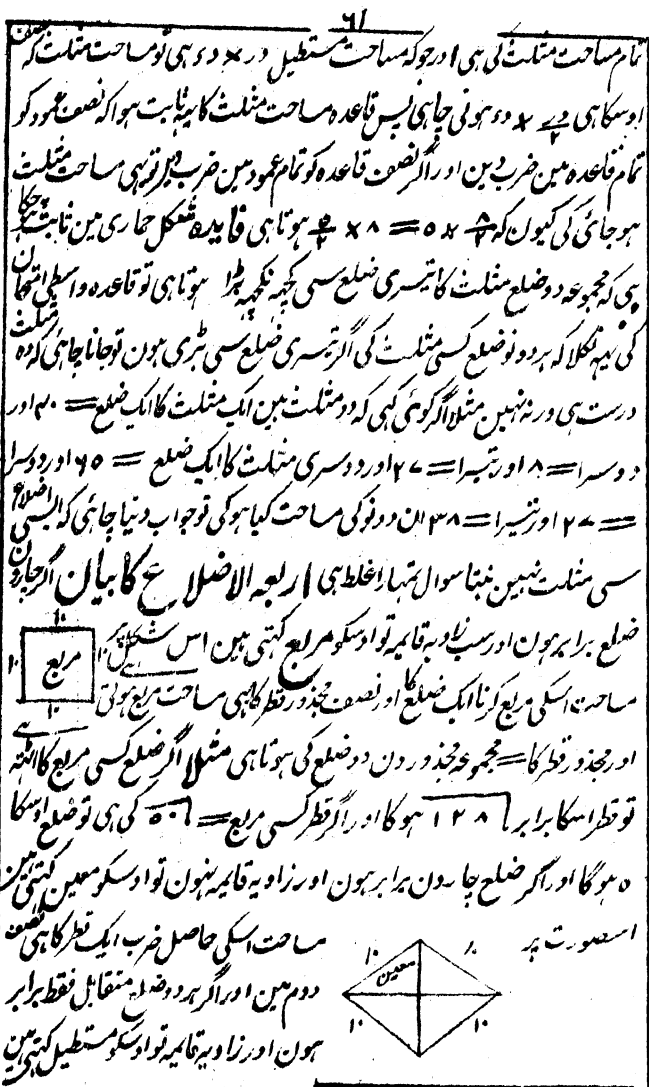 ۶۱
تمام مساحت مثلث کی ہی اور جو کہ مساحت مستطیل در × دء ہی تو مساحت مثلث کہ نصف
اوسکا ہی در/۲ × دء ہونی چاہی پس قاعدہ مساحت مثلث کا یہہ ثابت ہوا کہ نصف عمود کو
تمام قاعدہ مین ضرب دین اور اگر نصف قاعدہ کو تمام عمود مین ضرب دین تو بہی مساحت مثلث
ہو جائی گی کیون کہ ۸/۲ × ۵ = ۸ × ۵/۲ ہوتا ہی فایدہ شکل حماری مین ثابت ہو چکا
ہی کہ مجموعہ دو ضلع مثلث کا تیسری ضلع سی کچہہ نکچہہ بڑا ہوتا ہی تو قاعدہ واسطی امتحان
کی یہہ نکلا کہ ہر دو نو ضلع کسی مثلث کی اگر تیسری ضلع سی بڑی ہون تو جانا چاہی کہ وہ مثلث
درست ہی ورنہ نہین مثلا اگر کوئی کہی کہ دو مثلث ہین ایک مثلث کا ایک ضلع = ۲۰ اور
دوسرا = ۸ اور تیسرا = ۲۷ اور دوسری مثلث کا ایک ضلع = ۶۵ اور دوسرا
= ۲۷ اور تیسرا = ۳۸ ان دونو کی مساحت کیا ہوگی تو جواب دینا چاہی کہ ایسی اضلاع
سی مثلث نہین بنتا سوال تمہارا غلط ہی اربعۃ الاضلاع کا بیان اگر چارون
ضلع برابر ہون اور سب زاویہ قایمہ تو اوسکو مربع کہتی ہین اس شکل پر
۱۰
۱۰ مربع ۱۰
۱۰
مساحت اسکی مربع کرنا ایک ضلع کا اور نصف مجذور قطر کا بہی مساحت مربع ہوتی ہے
اور مجذور قطر کا = مجموعہ مجذورون دو ضلع کی ہوتا ہی مثلا اگر ضلع کسی مربع کا آٹہہ ہے
تو قطر اسکا برابر √۱۲۸ ہوگا اور اگر قطر کسی مربع = √۵۰ کی ہی تو ضلع اوسکا
۵ ہوگا اور اگر ضلع چارون برابر ہون اور زاویہ قایمہ نہون تو اوسکو معین کہتی ہین
اس صورت پر
۱۰ ۱۰
معین
۱۰ ۱۰
مساحت اسکی حاصل ضرب ایک قطر کا ہی نصف
دوم مین اور اگر ہر دو ضلع متقابل فقط برابر
ہون اور زاویہ قایمہ تو اوسکو مستطیل کہتی ہین